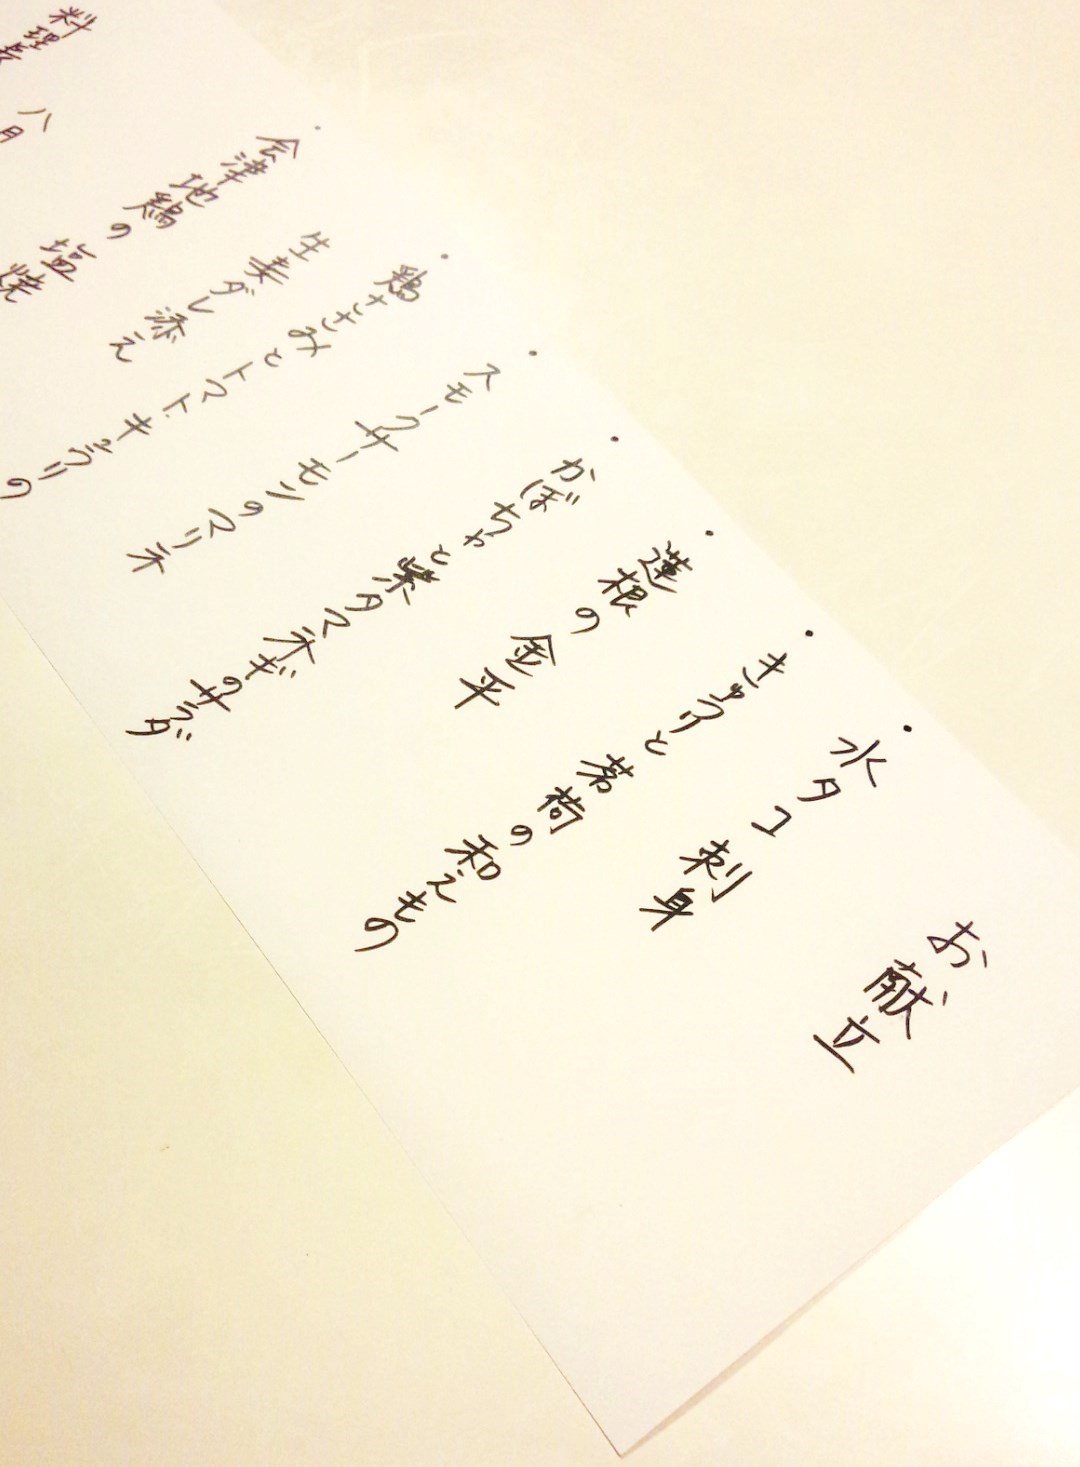 お献立
・水タコ刺身
・きゅうりと茗荷の和えもの
・蓮根の金平
・かぼちゃと紫タマネギのサラダ
・スモークサーモンのマリネ
・鶏ささみとトマト、キュウリの
生姜ダレ添え
・会津地鶏の塩焼
八月
料理